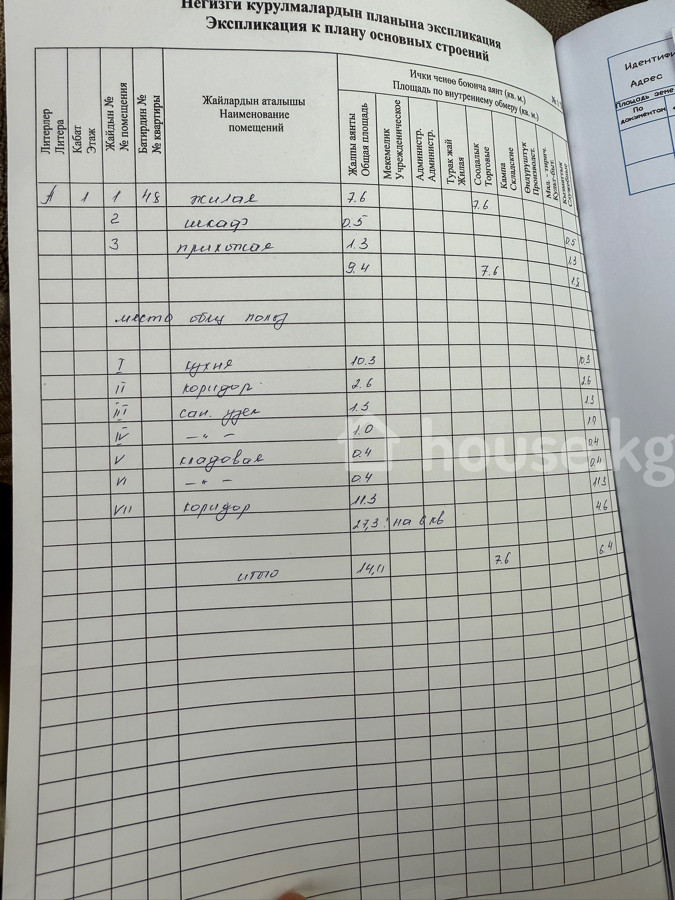 Негизги курулмалардын планына экспликация
Экспликация к плану основных строений
Литерлер Литера
Кабат Этаж
Жайдын № № помещения
Батирдин № № квартиры
Жайлардын аталышы
Наименование
помещений
Ички ченөө боюнча аянт (кв. м.)
Площадь по внутреннему обмеру (кв. м.)
Жалпы аянты Общая площадь
Мекемелик Учрежденическое
Администр. Администр.
Турак жай Жилая
Соодалык Торговые
Кампа Складские
Өндүрүштүк Производст.
А 1 1 48 жилая 7.6 7.6
2 шкаф 0.5 0.5
3 прихожая 1.3 1.3
9.4 7.6 1.8
место общ польз
I кухня 10.3 10.3
II коридор 2.6 2.6
III сан. узел 1.3 1.3
IV –"– 1.0 1.0
V кладовая 0.4 0.4
VI –"– 0.4 0.4
VII коридор 11.3 11.3
27,3 : на 6 кв 4.6
итого 14,0 7.6 6.4
house.kg
Идентифи
Адрес
Площадь земе
По
документам